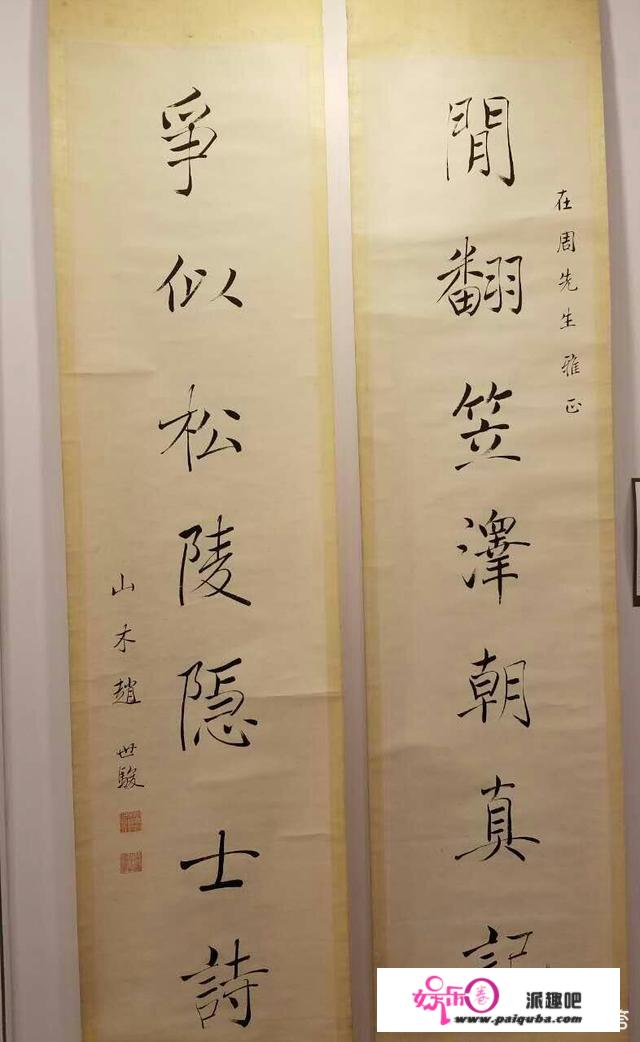 在周先生雅正
閒翻笠澤朝真記
爭似松陵隠士詩
山木趙世駿
娱乐圈 派趣吧
www.paiquba.com